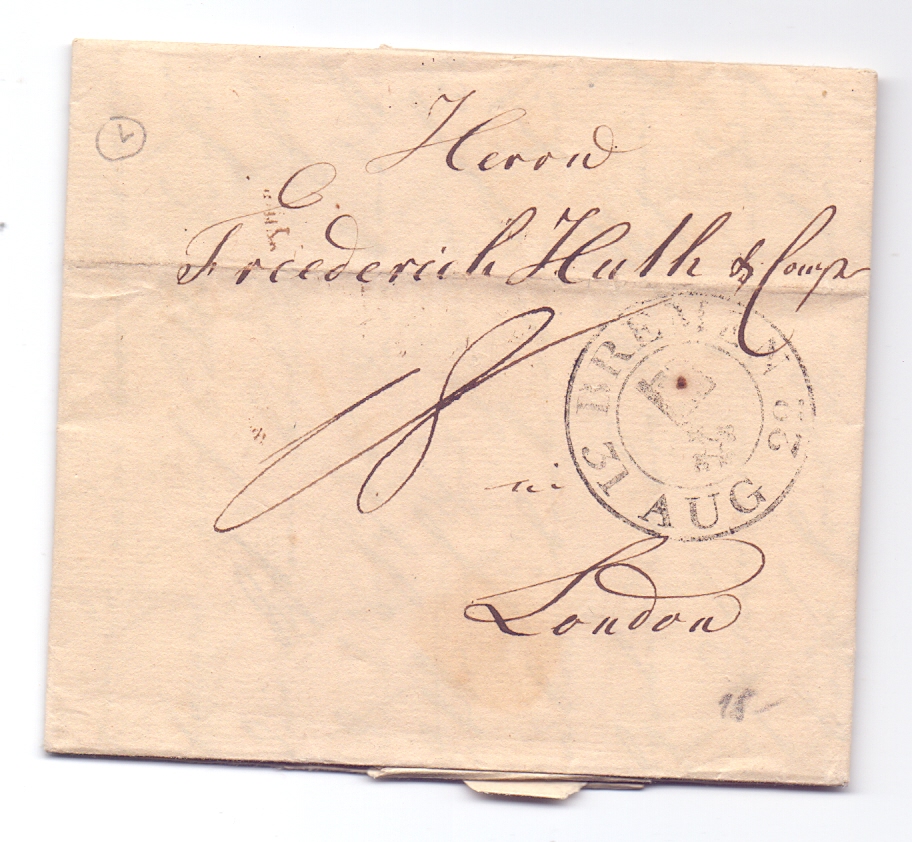 Herrn
Friederich Huth & Comp
18
BREMEN
13 AUG
in
London
18-